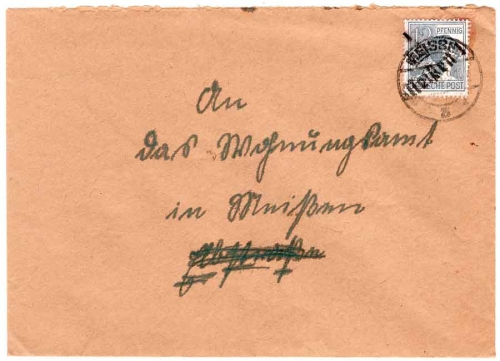 12 PFENNIG
DEUTSCHE POST
MEISSEN
Meißen
An
das Wohnungsamt
in Meißen